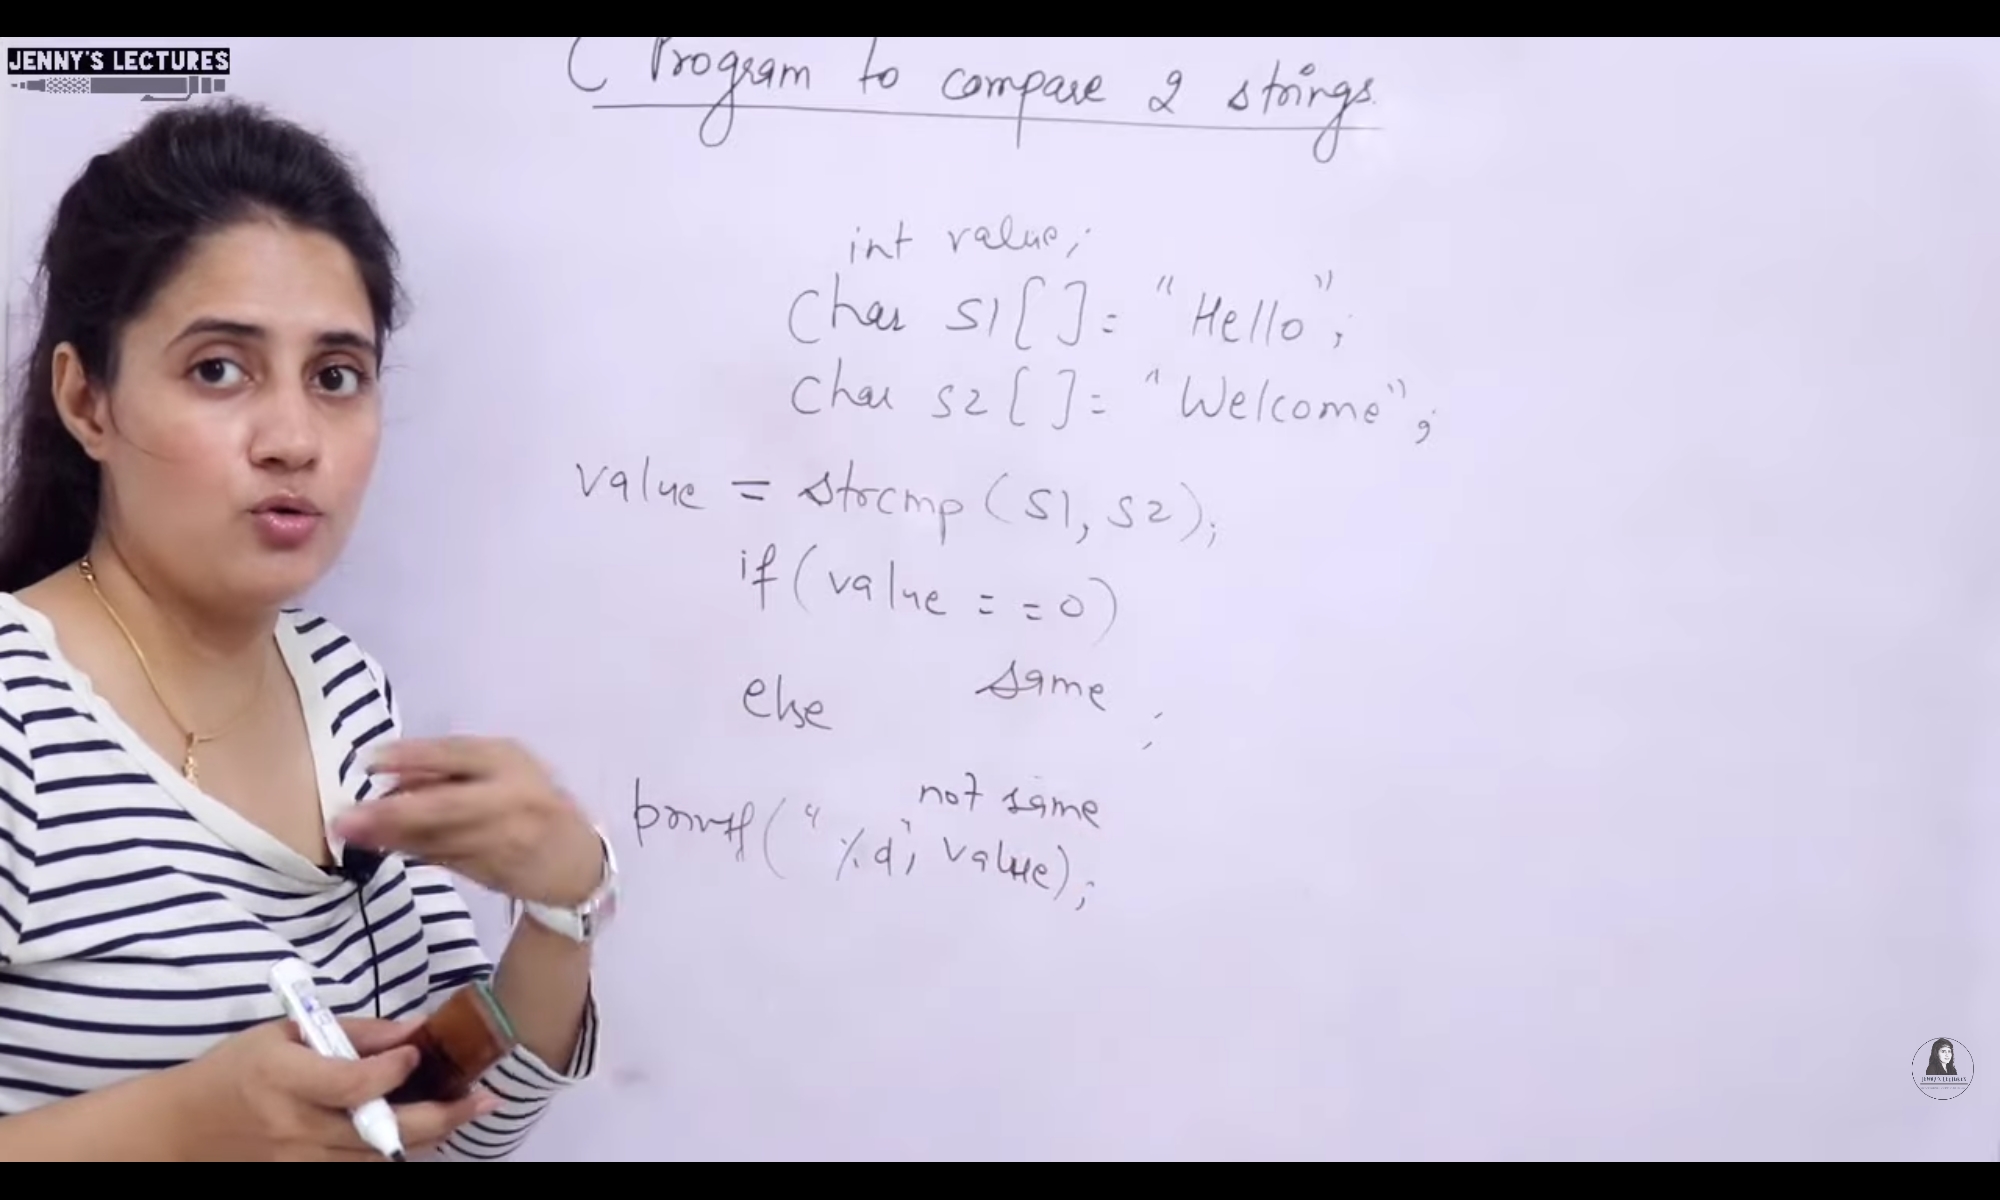 JENNY'S LECTURES
C Program to compare 2 strings.
int value;
Char S1[ ]= "Hello";
Char S2[ ]= "Welcome";
value = strcmp(S1, S2);
if(value ==0)
same
else ;
not same
printf("%d", value);
JENNY'S LECTURES